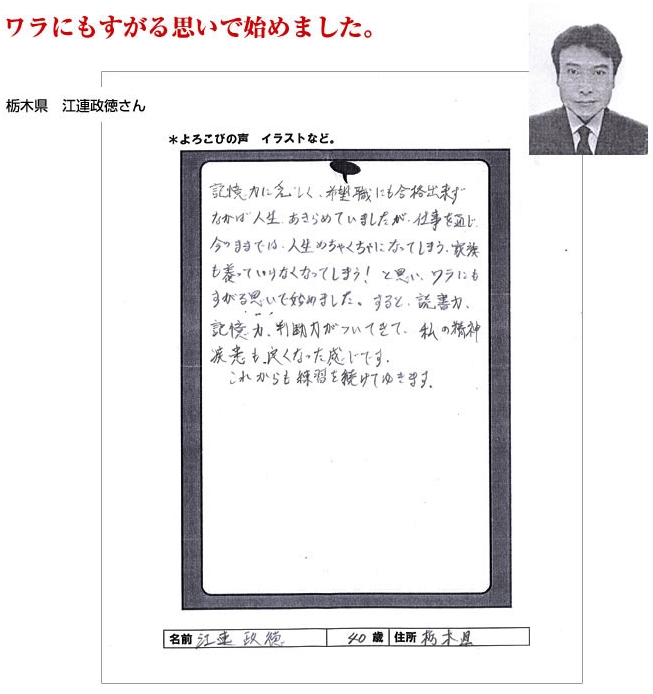 ワラにもすがる思いで始めました。
栃木県　江連政徳さん
＊よろこびの声　イラストなど。
記憶力に乏しく、希望職にも合格出来ず
なかば人生、あきらめていましたが、仕事を通じ、
今のままでは、人生めちゃくちゃになってしまう、家族
も養っていけなくなってしまう！と思い、ワラにも
すがる思いで始めました。すると、読書力、
記憶力、判断力がついてきて、私の精神
疾患も、良くなった感じです。
これからも練習を続けてゆきます。
名前 江連 政徳 40 歳 住所 栃木県